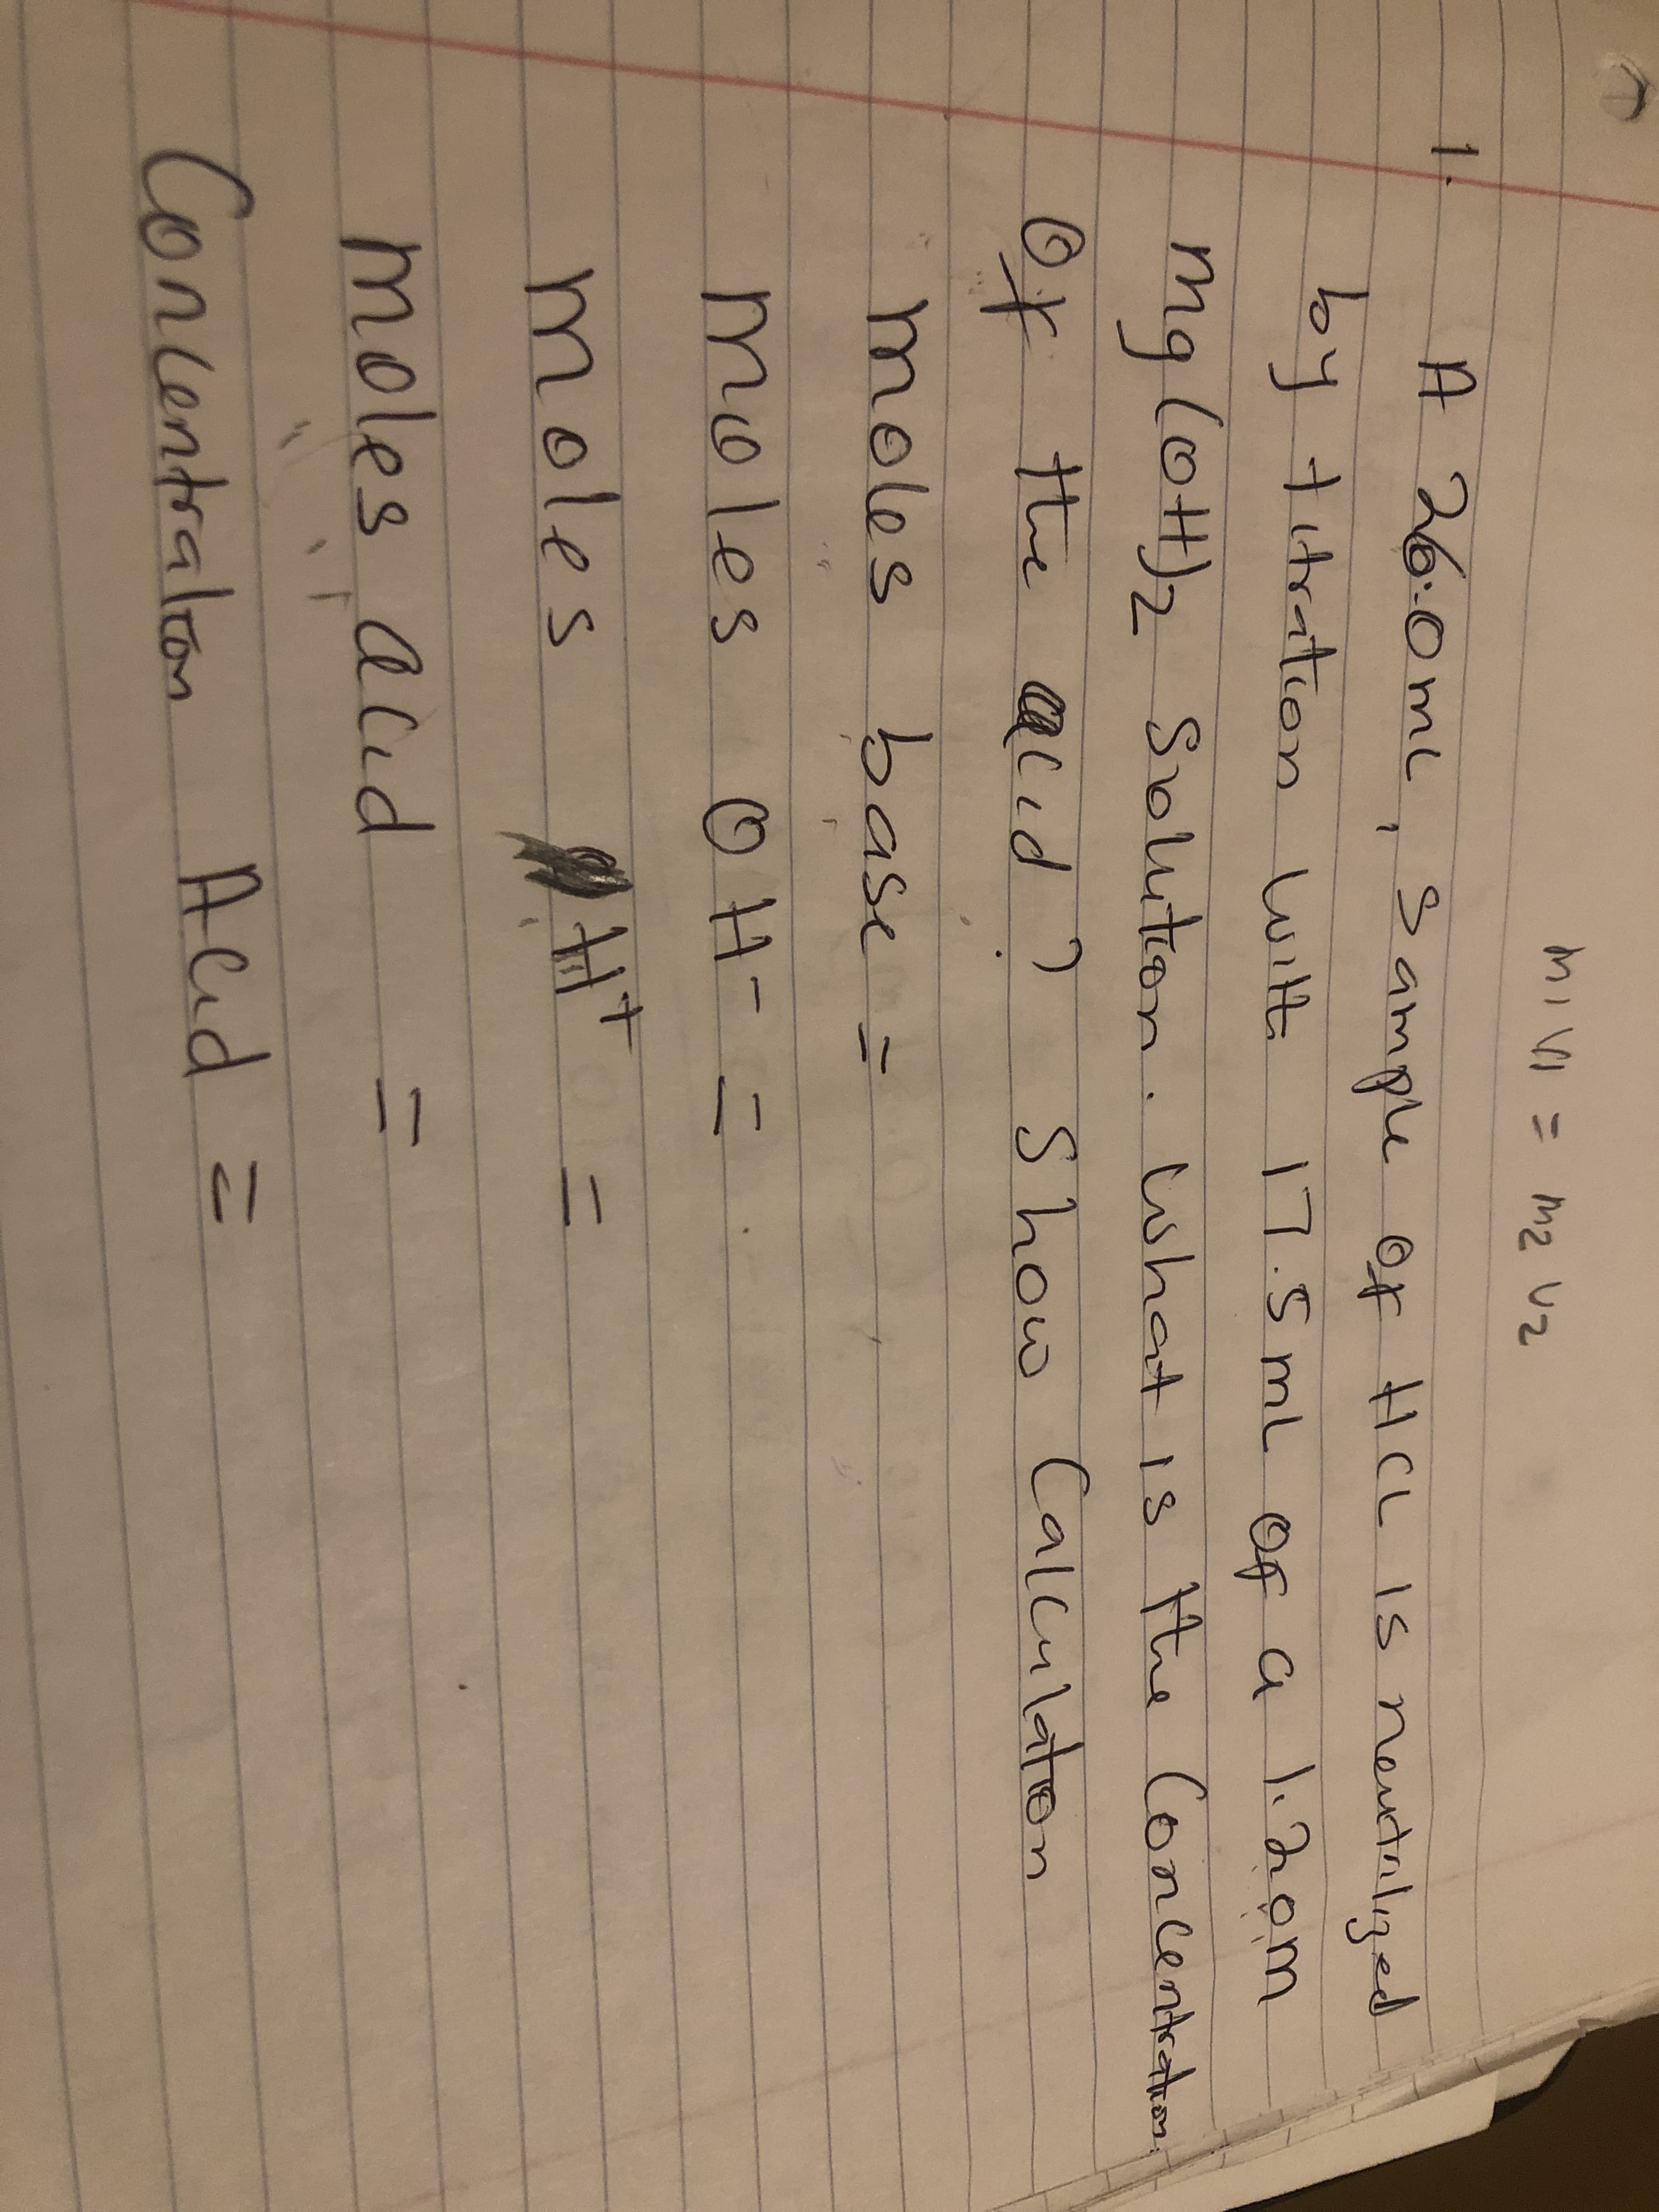 M1 V1 = M2 V2
1. A 26.0mL, sample of HCL is neutralized
by titration with 17.5mL of a 1.20M
Mg(OH)2 Solution. What is the Concentration
of the acid? Show Calculation
moles base =
moles OH- =
moles H+ =
moles acid =
Concentration Acid =